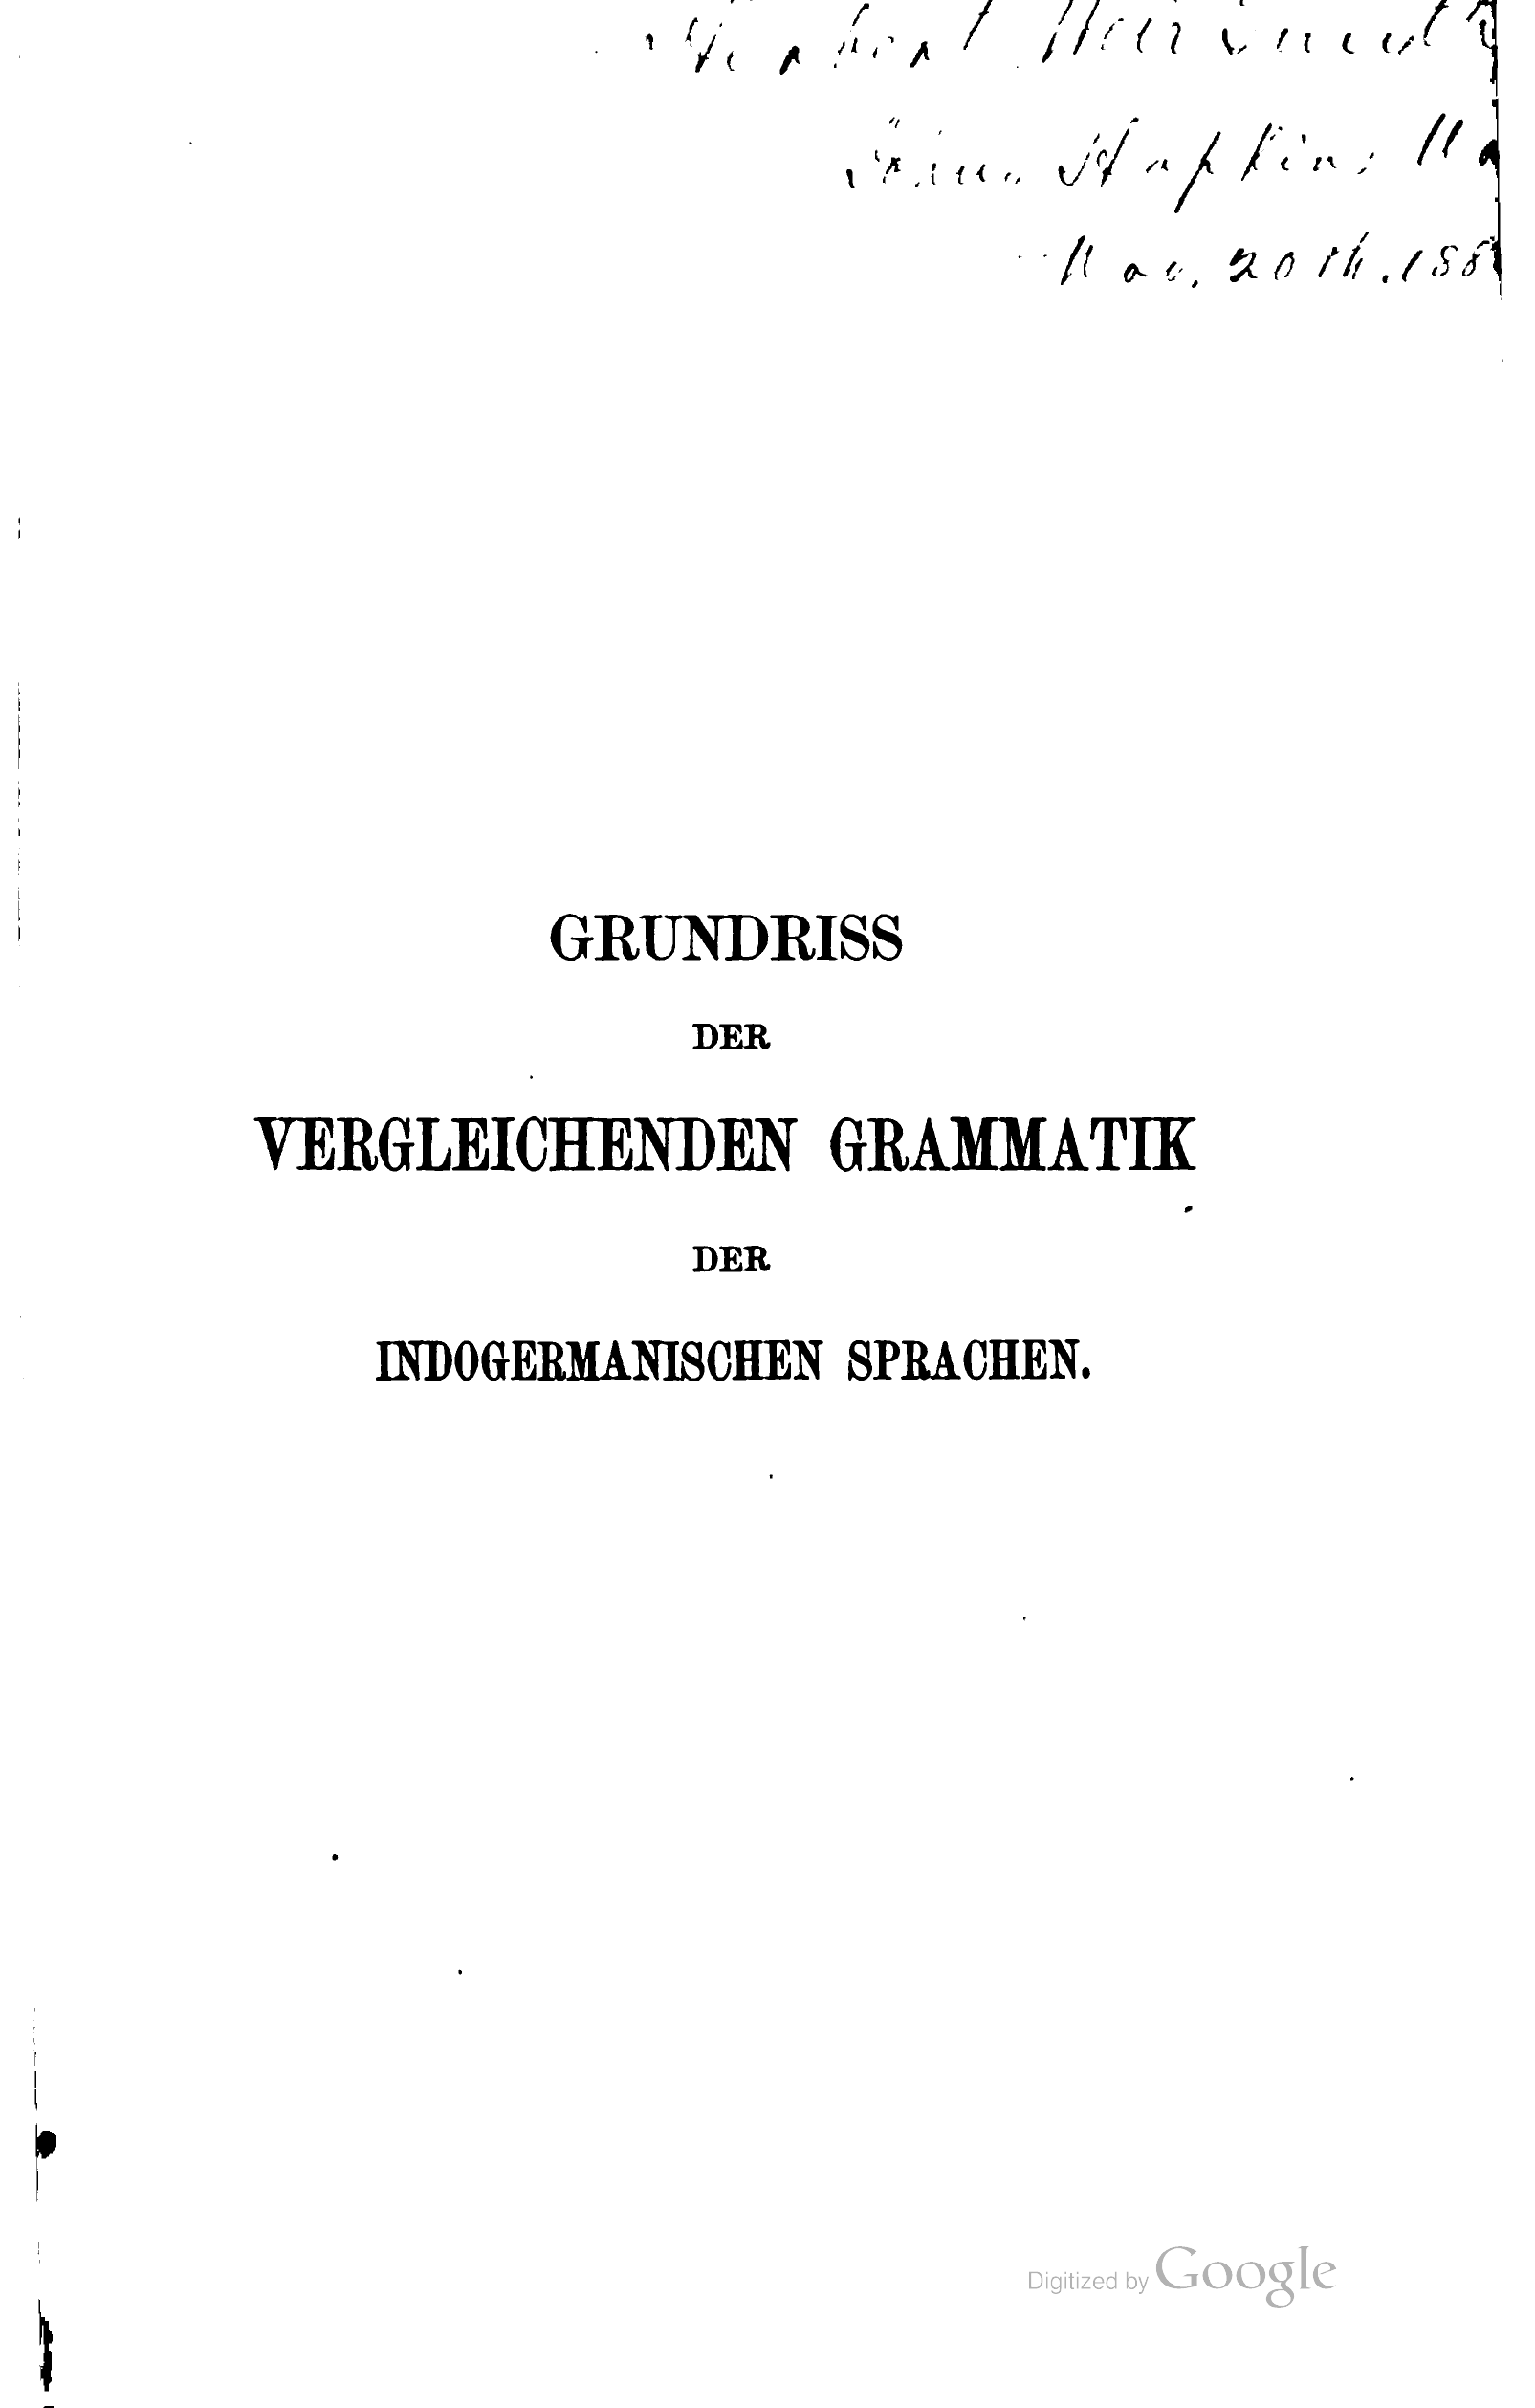 Hopkins
Nov. 20th. 188
GRUNDRISS
DER
VERGLEICHENDEN GRAMMATIK
DER
INDOGERMANISCHEN SPRACHEN.
Digitized by Google